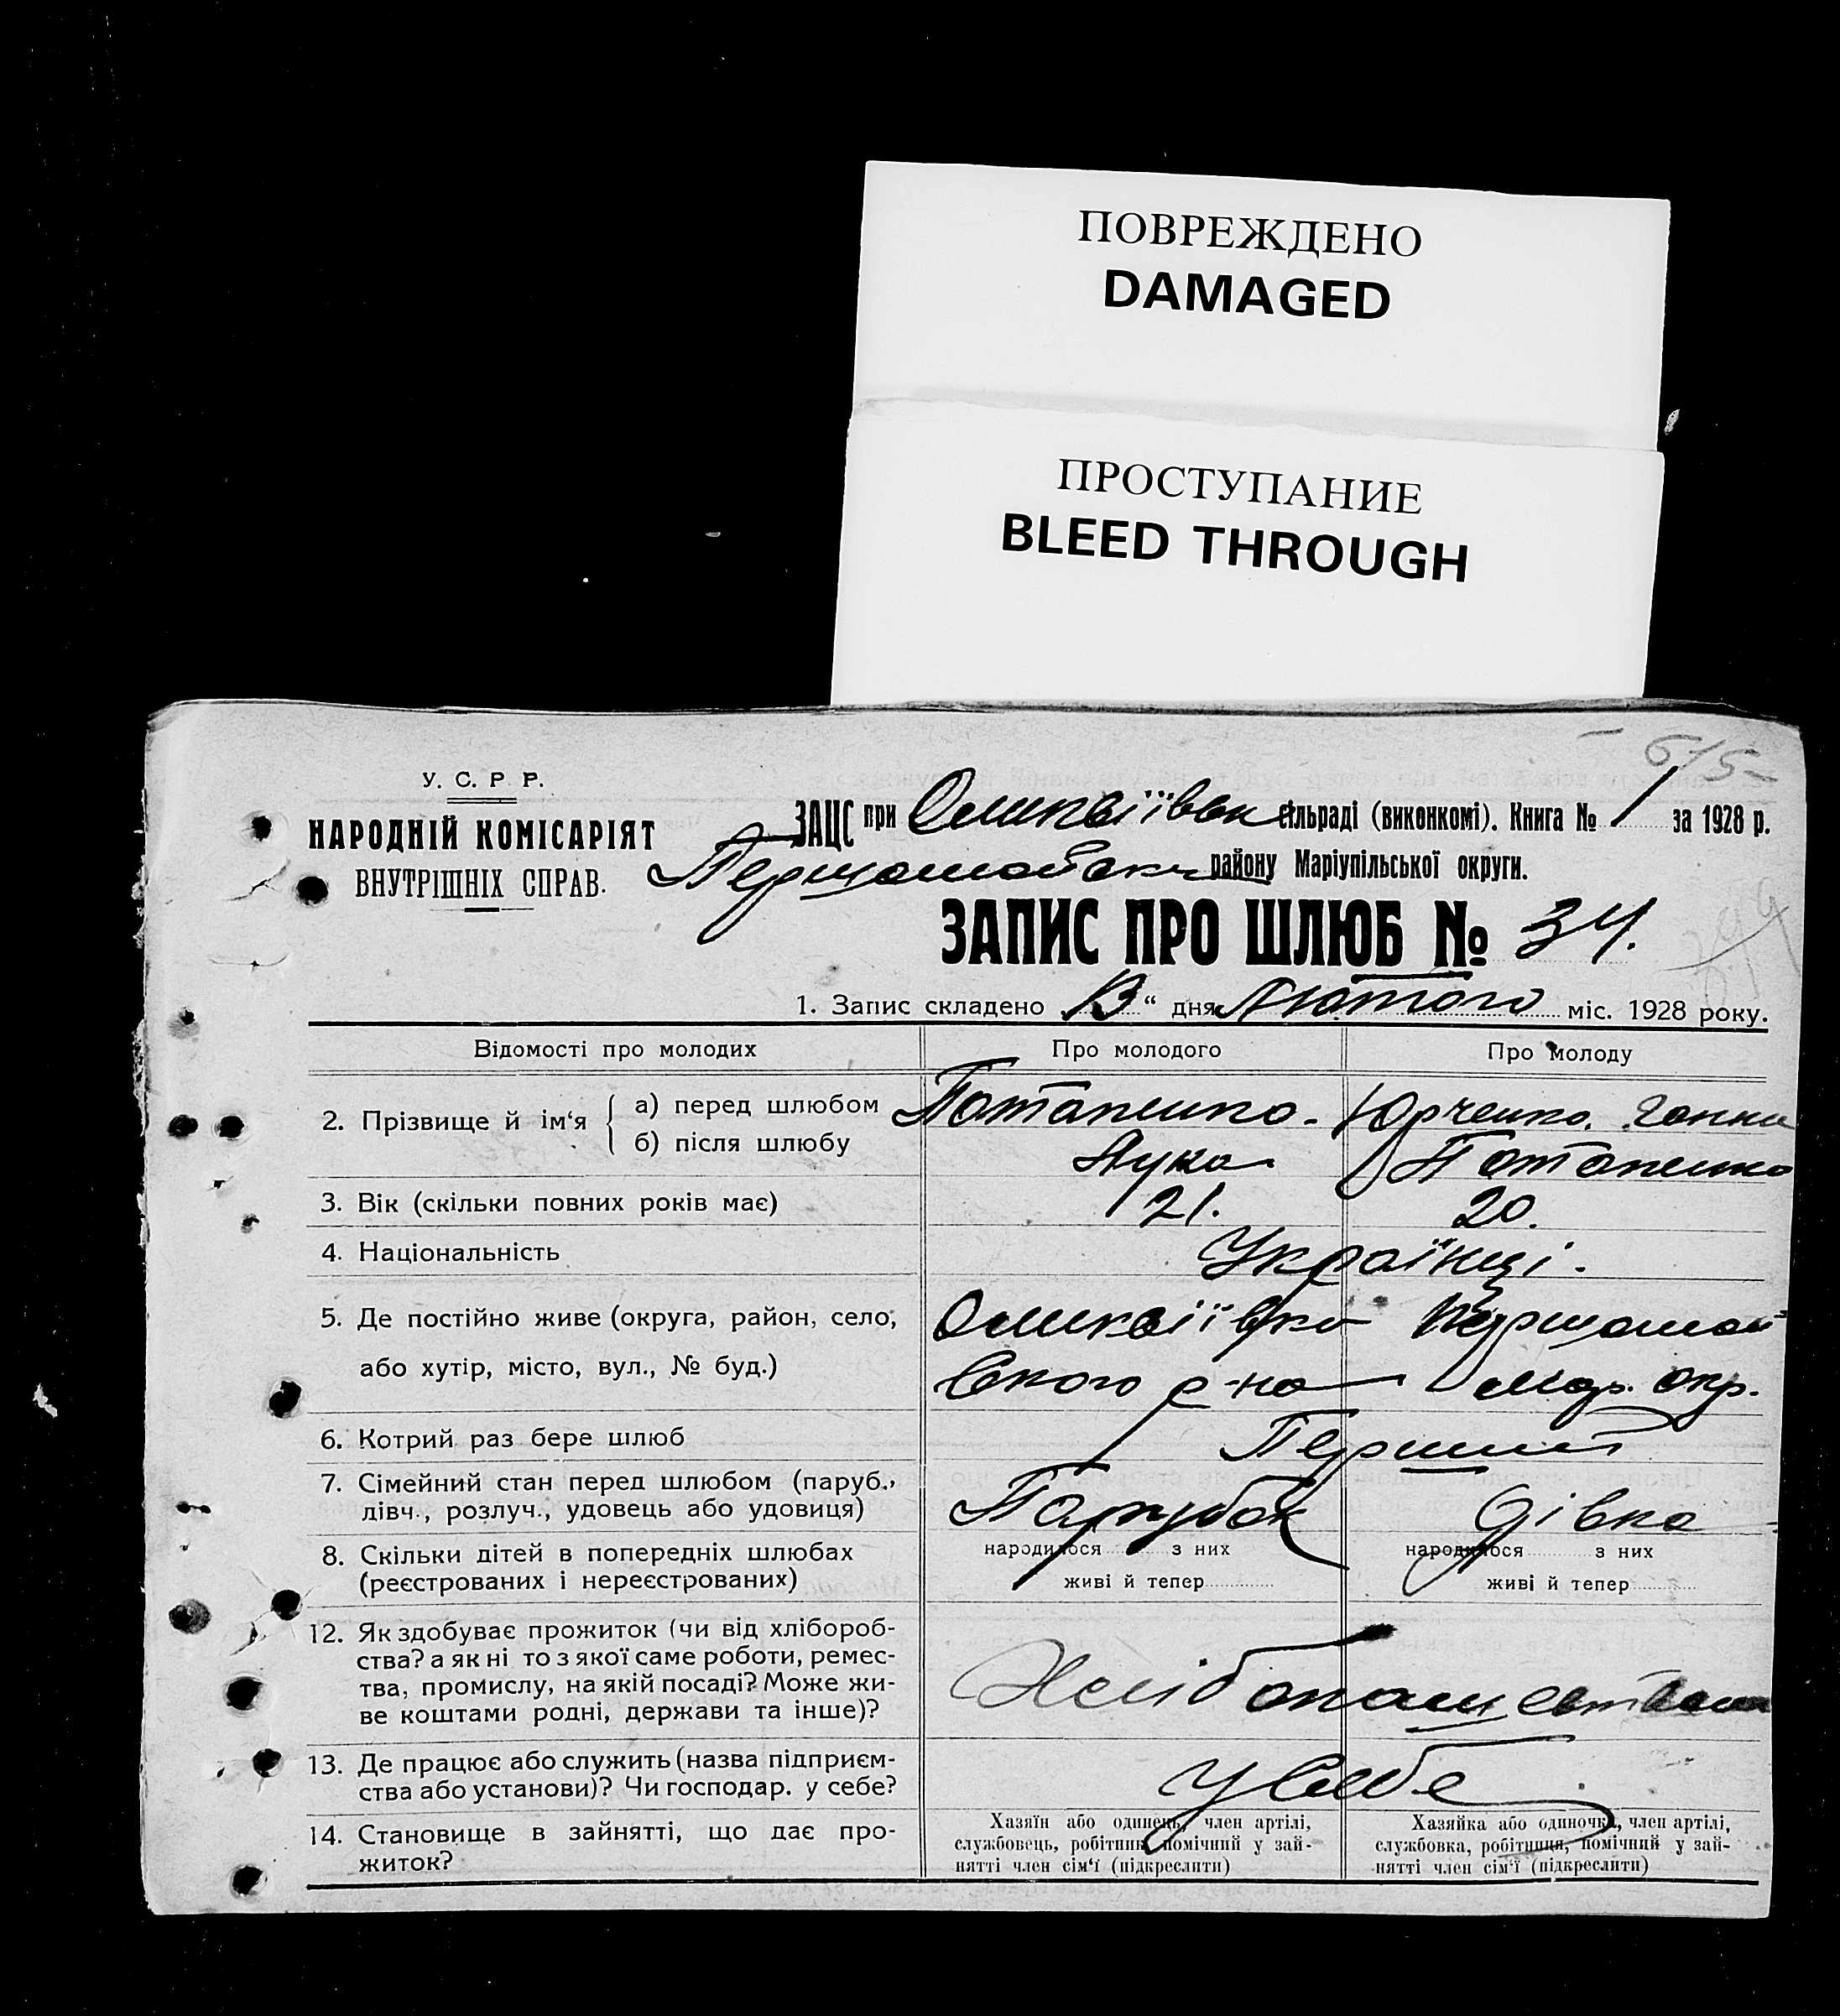 ПОВРЕЖДЕНО
DAMAGED
ПРОСТУПАНИЕ
BLEED THROUGH
615
У. С. Р. Р.
НАРОДНІЙ КОМІСАРІЯТ
ВНУТРІШНІХ СПРАВ.
ЗАЦС при сільраді (виконкомі). Книга № 1 за 1928 р.
Першомайськ району Маріупільської округи.
ЗАПИС ПРО ШЛЮБ № 34.
1. Запис складено „13“ дня Лютого міс. 1928 року.
Відомості про молодих Про молодого Про молоду
2. Прізвище й ім‘я { а) перед шлюбом Потапенко. Юрченко. Ганна
б) після шлюбу Лука Потапенко
3. Вік (скільки повних років має) 21. 20.
4. Національність Українці.
5. Де постійно живе (округа, район, село, Першомай
або хутір, місто, вул., № буд.) ського р-на Мар. окр.
6. Котрий раз бере шлюб Перший
7. Сімейний стан перед шлюбом (паруб., дівч., розлуч., удовець або удовиця) Парубок Дівка
8. Скільки дітей в попередніх шлюбах народилося з них народилося з них
(реєстрованих і нереєстрованих) живі й тепер живі й тепер
12. Як здобуває прожиток (чи від хлібороб-
ства? а як ні то з якої саме роботи, ремес-
тва, промислу, на якій посаді? Може жи- Хлібопашеством
ве коштами родні, держави та інше)?
13. Де працює або служить (назва підприєм- У себе
ства або установи)? Чи господар. у себе?
14. Становище в зайнятті, що дає про-
житок?
Хазяїн або одинець, член артілі,
службовець, робітник, помічний у зай-
нятті член сім‘ї (підкреслити)
Хазяйка або одиночка, член артілі,
службовка, робітниця, помічний у зай-
нятті член сім‘ї (підкреслити)